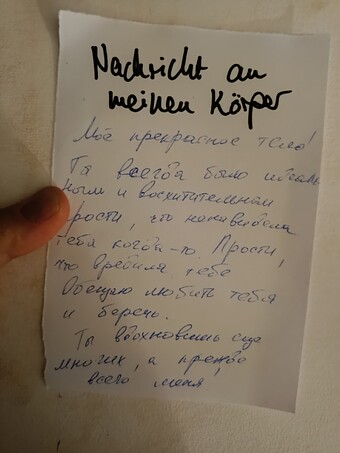 Nachricht an
meinen Körper
Моё прекрасное тело!
Ты всегда было идеаль
ным и восхитительным
Прости, что ненавидела
тебя когда-то. Прости,
что вредила тебе
Обещаю любить тебя
и беречь.
Ты вдохновишь ещё
многих, а прежде
всего меня!